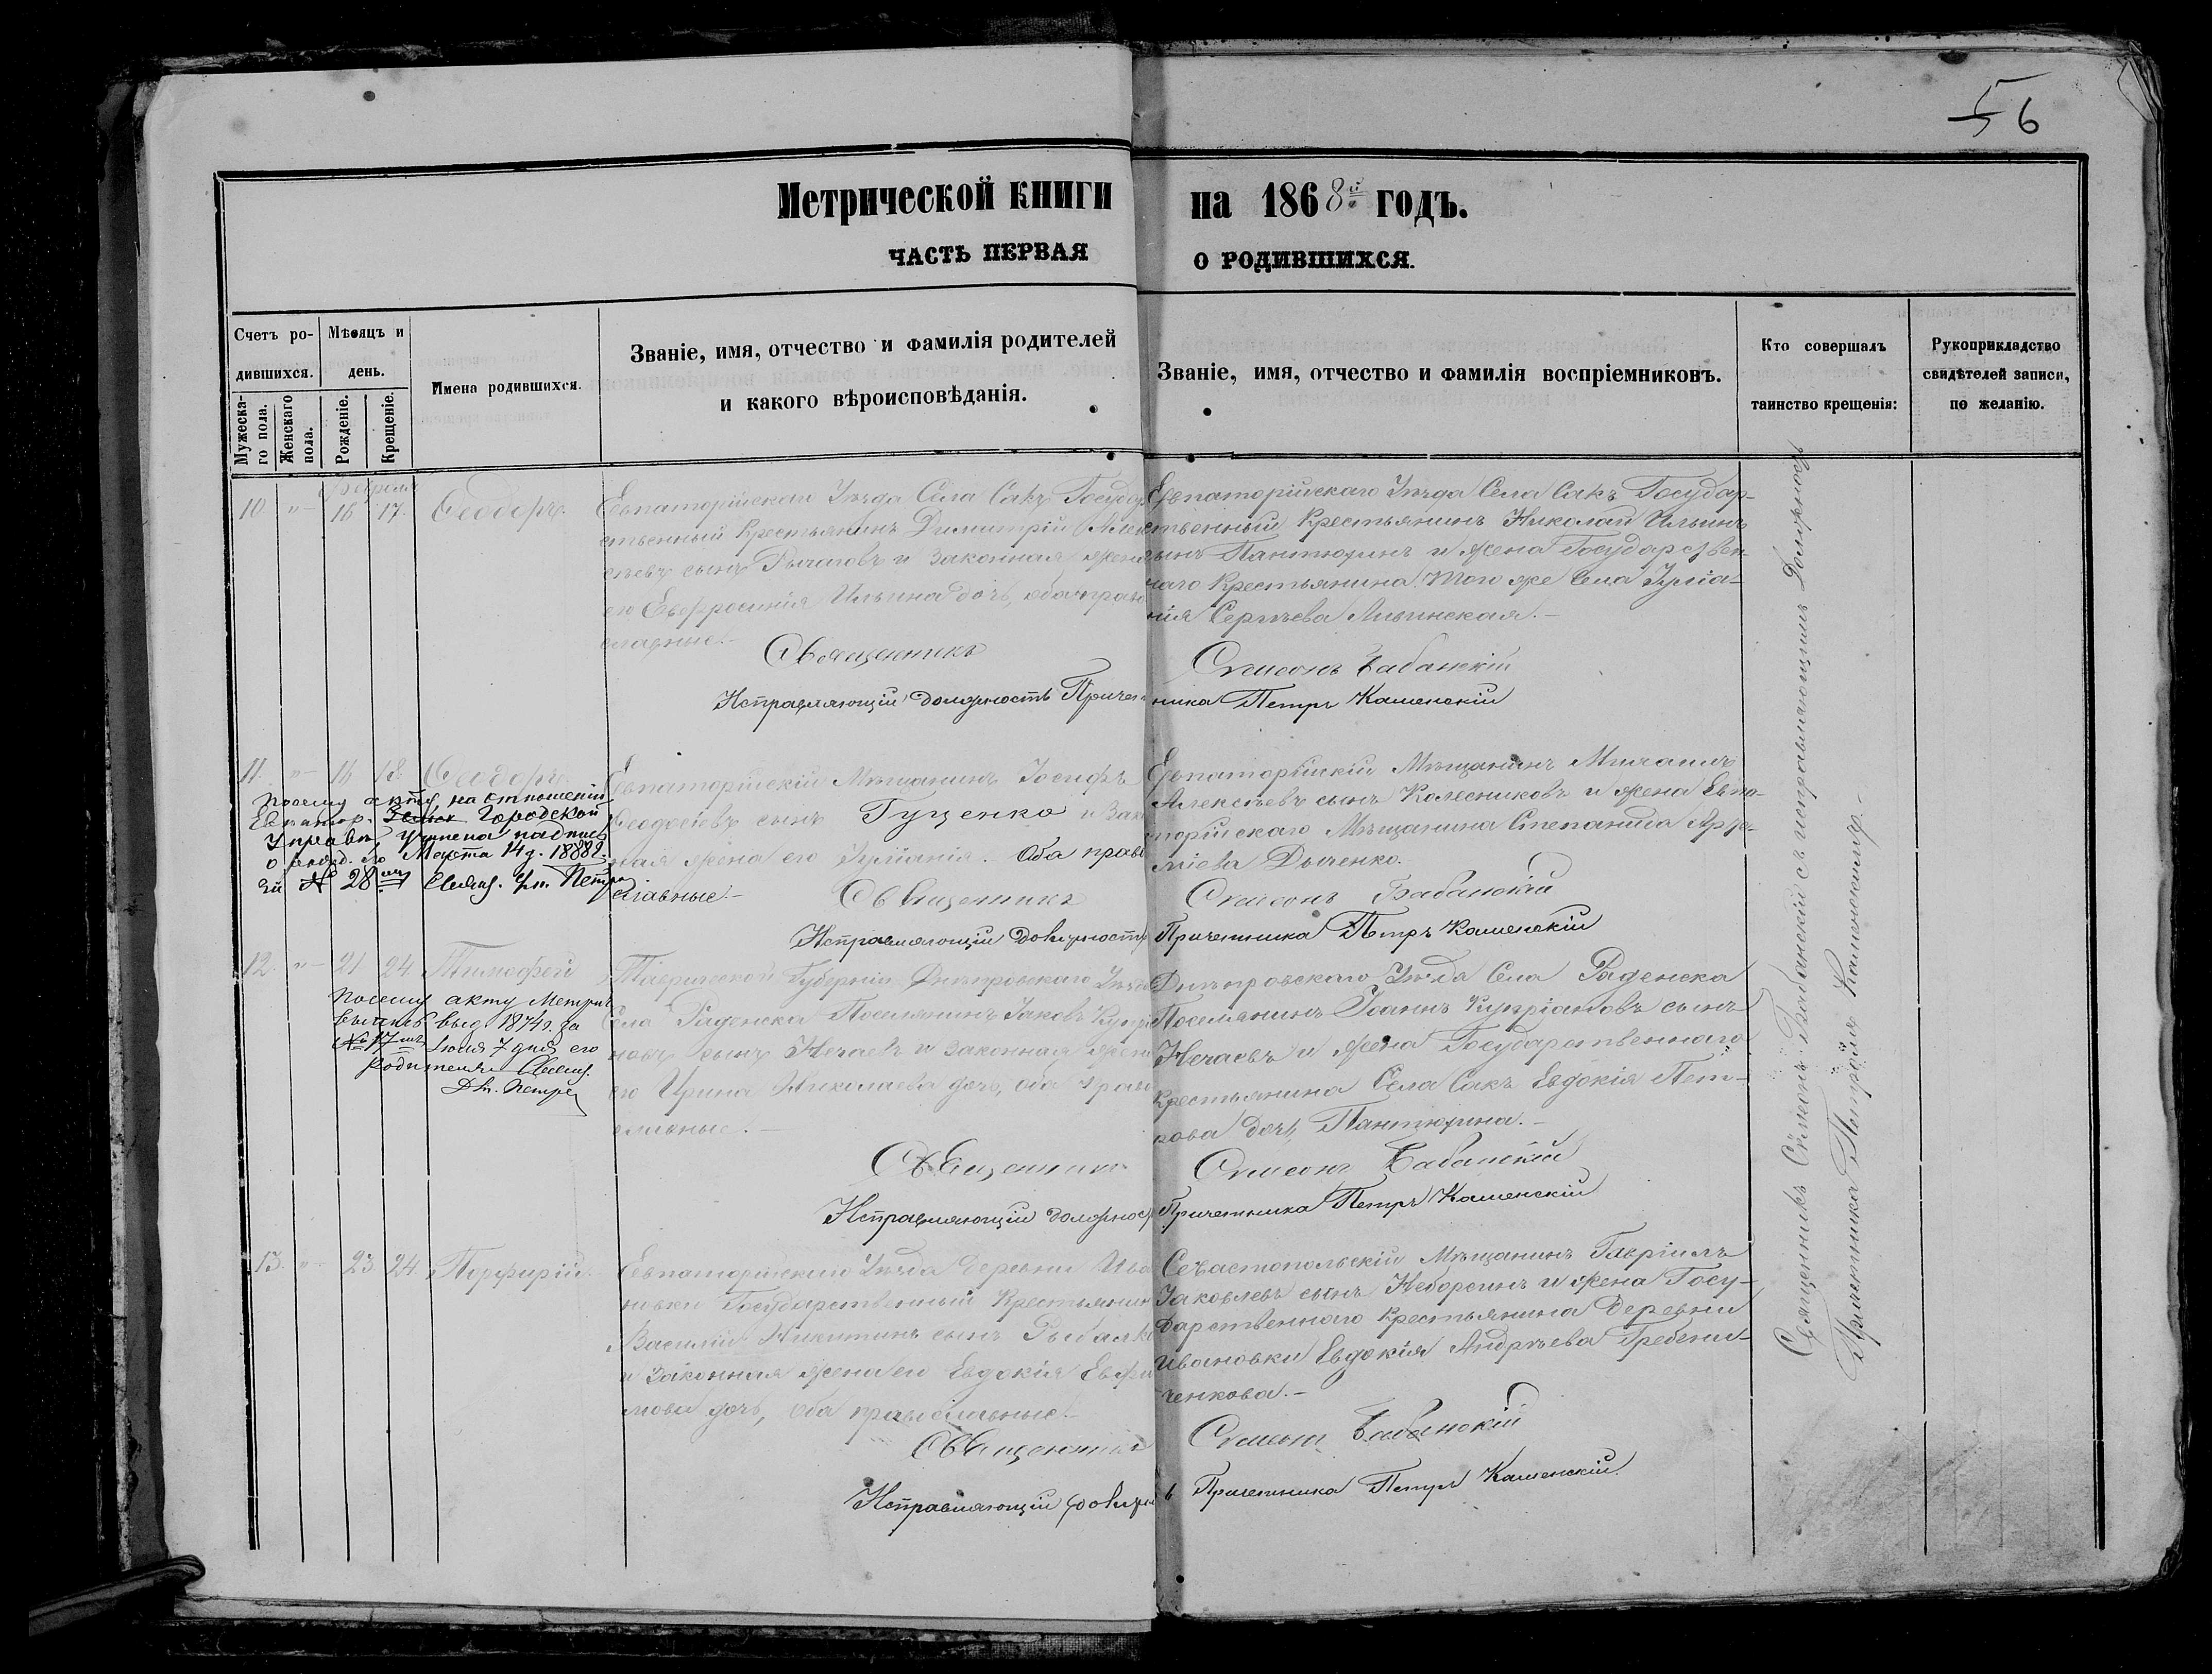 56
Метрической книги на 1868й годъ.
ЧАСТЬ ПЕРВАЯ О РОДИВШИХСЯ.
Счетъ ро-
дившихся.
Мужеска-
го пола.
Женскаго
пола.
Мѣсяцъ и
день.
Рожденіе.
Крещеніе.
Имена родившихся.
Званіе, имя, отчество и фамилія родителей
и какого вѣроисповѣданія.
Званіе, имя, отчество и фамилія воспріемниковъ.
Кто совершалъ
таинство крещенія:
Рукоприкладство
свидѣтелей записи,
по желанію.
Февраля
10 " 16 17 Ѳеодоръ.
Евпаторійскаго Уѣзда Села Сакъ Государ
ственный Крестьянинъ Димитрій Алек
сѣевъ сынъ Рычаговъ и законная жена
его Евфросинія Ильина дочь, оба право
славные.
Священникъ
Исправляющій должность Причет
Евпаторійскаго Уѣзда Села Сакъ Государ-
ственный Крестьянинъ Николай Ильинъ
сынъ Пантюхинъ и жена Государствен
наго Крестьянина того же Села Уліа-
нія Сергѣева
Симеонъ Бабанскій
ника Петръ Каменскій
11. " 16 18 Ѳеодоръ
По сему акту, на отношеніи
Евпатор. Городской
Управы, учинена надпись
Марта 14 д. 1888 г.
за № 28мъ Петръ
Евпаторійскій Мѣщанинъ Іосифъ
Ѳеодосіевъ сынъ Гуценко и зак
ная жена его Уліанія. Оба право
славные.-
Священникъ
Исправляющій должность
Евпаторійскій Мѣщанинъ Михаилъ
Алексѣевъ сынъ Колесниковъ и жена Евпа-
торійскаго Мѣщанина Степанида
Дыченко.
Симеонъ Бабанскій
Причетника Петръ Каменскій
12. " 21 24 Тимофей
По сему акту Метрич
выпись выд 1874 г. за
№ 17мъ Іюня 7 дня его
родителя
Петръ
Таврической Губерніи Днѣпровскаго Уѣзда
Села Раденска Поселянинъ Іаковъ Купрія
новъ сынъ Нечаевъ и законная жена
его Ирина Николаева дочь, оба право
славные.-
Священникъ
Исправляющій должнос
Днѣпровскаго Уѣзда Села Раденска
Поселянинъ Іоаннъ Купріановъ сынъ
Нечаевъ и жена Государственнаго
крестьянина Села Сакъ Евдокія Пет-
рова дочь Пантюхина.-
Симеонъ Бабанскій
Причетника Петръ Каменскій
13. " 23 24. Порфирій.
Евпаторійскаго Уѣзда деревни Ива
новки Государственный Крестьянин
Василій Никитинъ сынъ Рыбалк
и законная жена его Евдокія Евфи
мова дочь, оба православные.
Священникъ
Исправляющій должн
Севастопольскій Мѣщанинъ Гавріилъ
Іаковлевъ сынъ и жена Госу-
дарственнаго крестьянина деревни
Ивановки Евдокія Андрѣева Гребени-
ченкова.-
Симеонъ Бабанскій
ь Причетника Петръ Каменскій.
Священникъ Симеонъ Бабанскій съ исправляющимъ Должность
Причетника Петромъ Каменскимъ.-